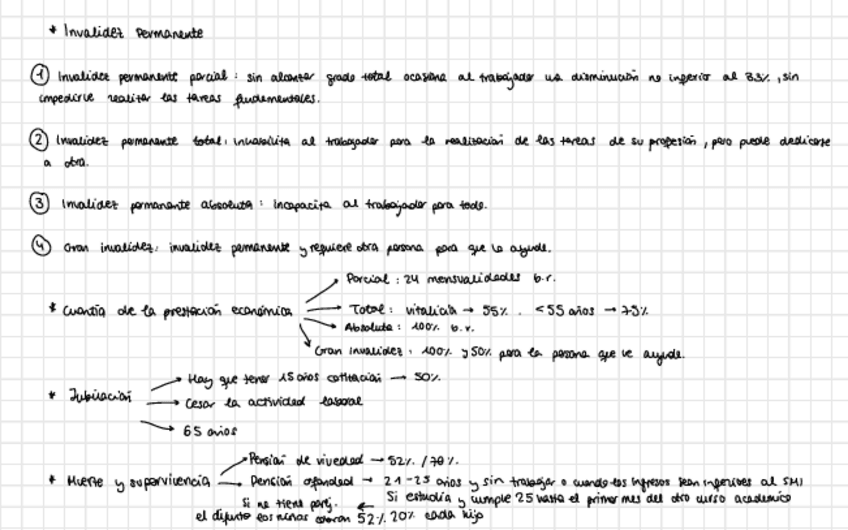 * Invalidez Permanente
① Invalidez permanente parcial: sin alcanzar grado total ocasiona al trabajador una disminución no inferior al 33%, sin
impedirle realizar las tareas fundamentales.
② Invalidez permanente total: inhabilita al trabajador para la realización de las tareas de su profesión, pero puede dedicarse
a otra.
③ Invalidez permanente absoluta: incapacita al trabajador para todo.
④ Gran invalidez: invalidez permanente y requiere otra persona para que le ayude.
→ Parcial: 24 mensualidades b.r.
* Cuantía de la prestación económica → Total: vitalicia → 55%. <55 años → 75%
→ Absoluta: 100% b.r.
Gran Invalidez: 100% y 50% para la persona que le ayude.
→ Hay que tener 15 años cotización → 50%.
* Jubilación → Cesar la actividad laboral
→ 65 años
→ Pensión de viudedad → 52% / 70%.
* Muerte y supervivencia → Pensión orfandad → 21-25 años y sin trabajar o cuando los ingresos sean inferiores al SMI
Si no tiene parej. ← Si estudia y cumple 25 hasta el primer mes del otro curso académico
el difunto los niños cobran 52% 20% cada hijo